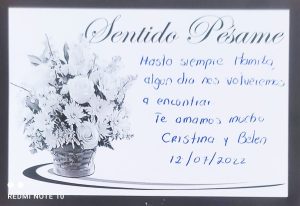 Sentido Pésame
Hasta siempre Mamita,
algun dia nos volveremos
a encontrar
Te amamos mucho
Cristina y Belen
12/07/2022
REDMI NOTE 10